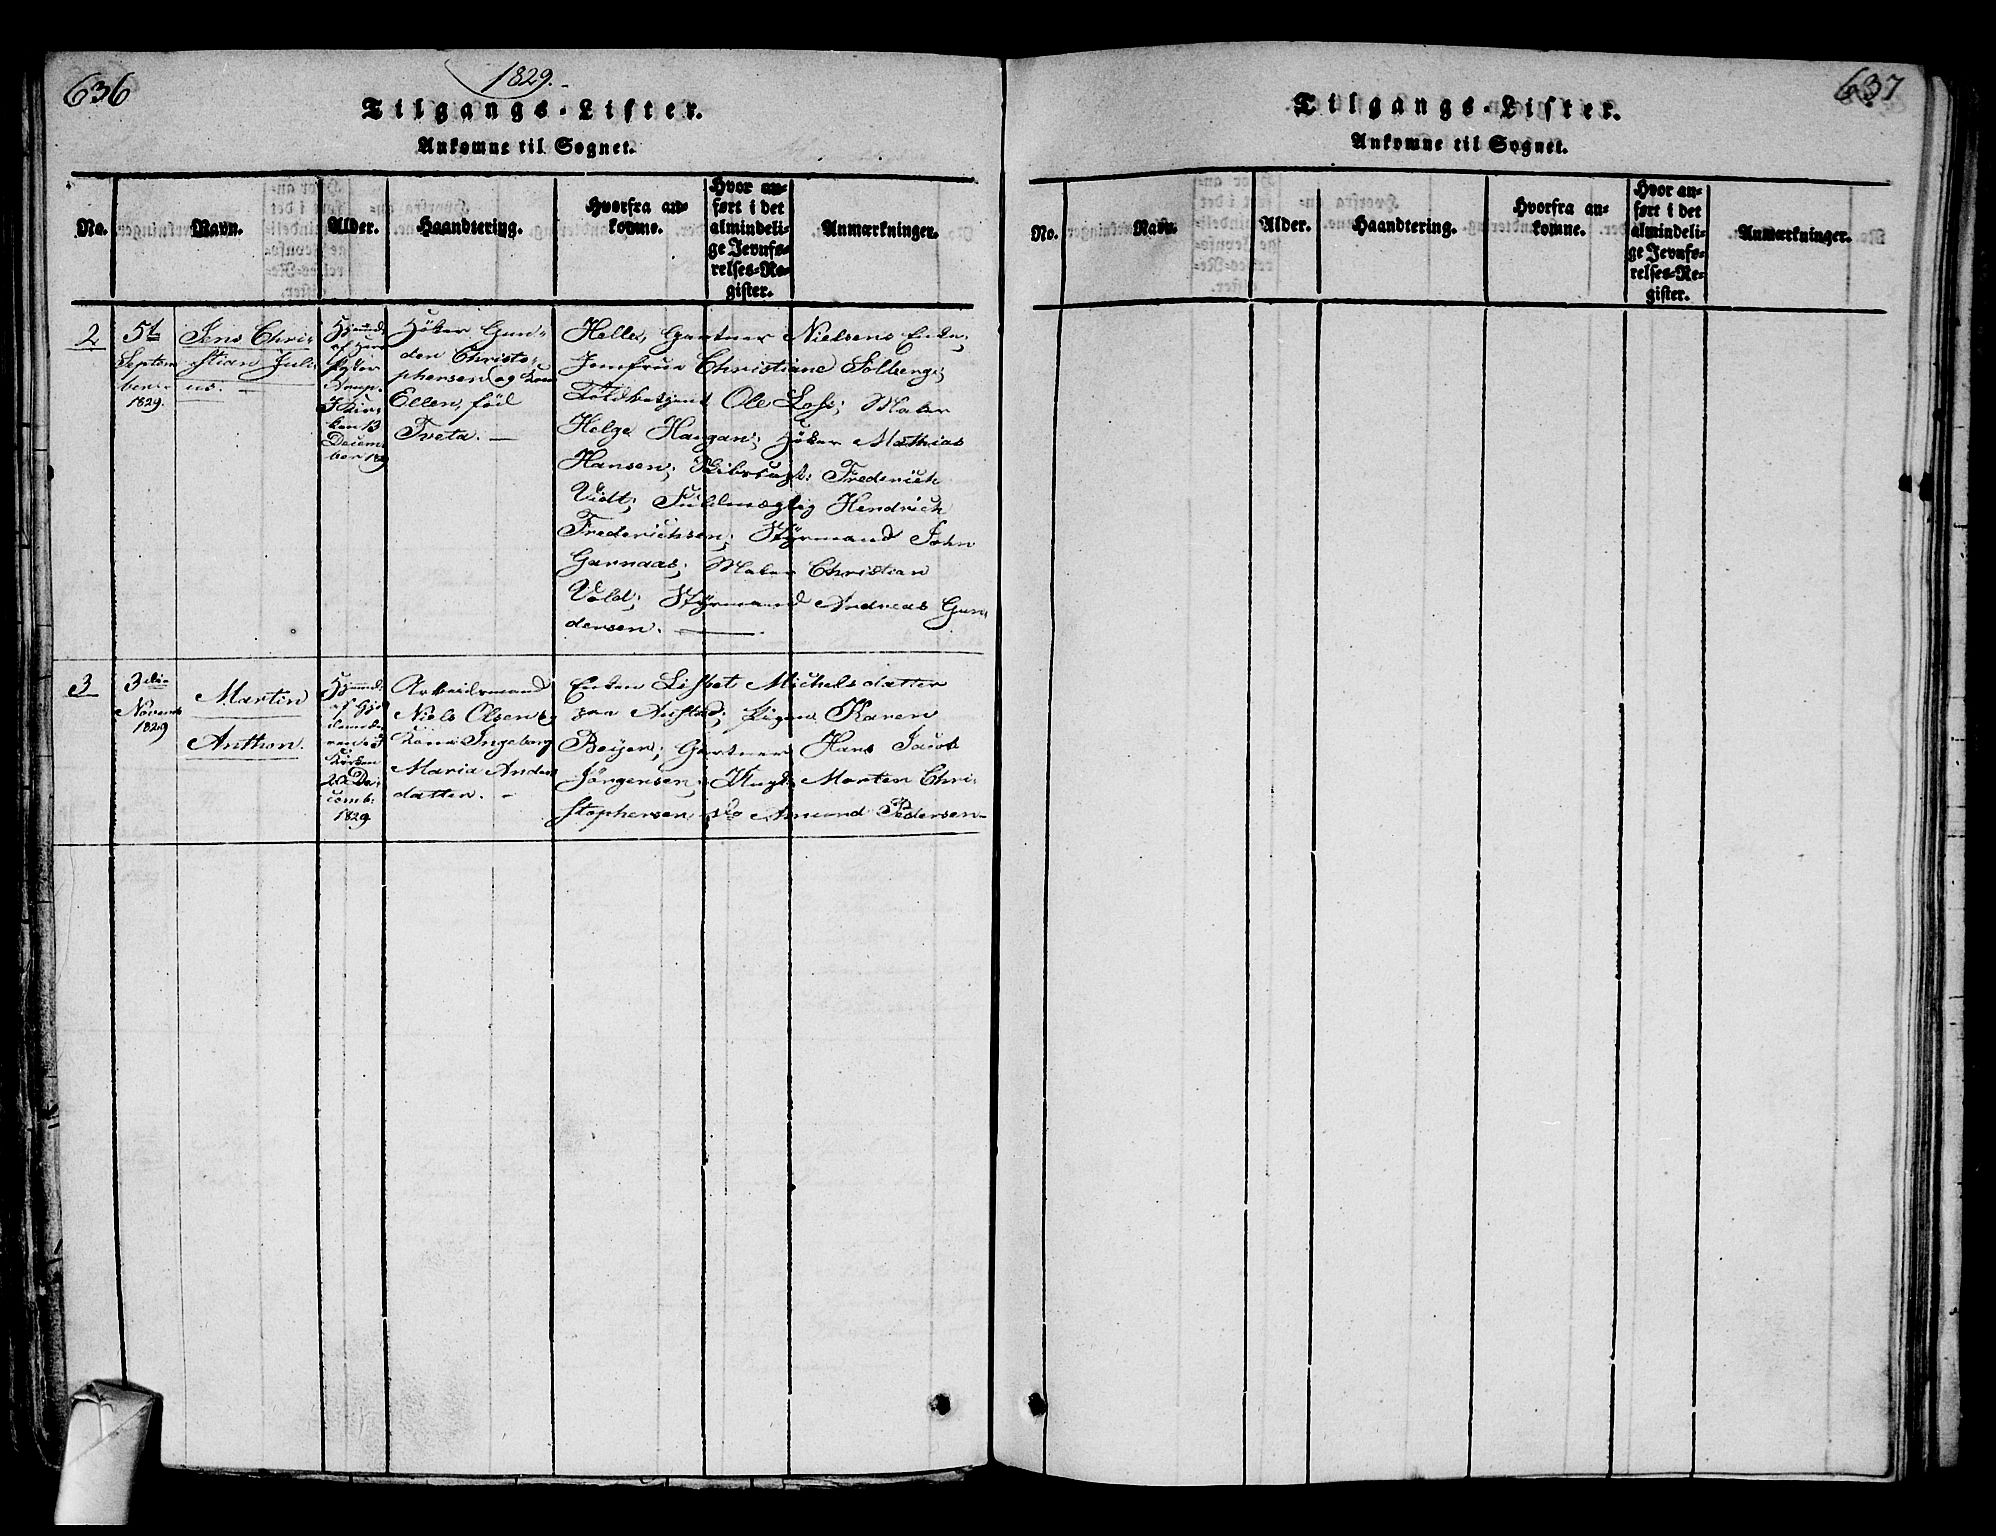 636
1829.
Tilgangs-Lister.
Ankomne til Sognet.
No.
Navn.
Alder.
Haandtering.
Hvorfra an-
komne.
Hvor an-
ført i det
almindeli-
ge Jevnfø-
relses-Re-
gister.
Anmærkninger.
2
5t
Septem
ber
1829.
Jens Chri-
stian Juli-
us.
Hjemmed.
af
Kirken 13
Decem-
ber 1829
Höker Gun-
den Christo-
phersen og Kone
Ellen, föd
Tveta.
Helle, Gartner Nielsens Enke,
Jomfrue Christiane Solberg;
Toldbetjent Ole Lass; Maler
Helge Haugan; Höker Mathias
Hansen; Frederich
Vidt; Fuldmægtig Hendrich
Frederichsen; Styrmand John
Garnaas; Maler Christian
Vold; Styrmand Andreas Gun-
dersen.
3
3die
Novemb
1829
Martin
Anthon.
Hjemmed.
af Gjor-
demode-
ren. I
Kirken
22 De-
cemb.
1829
Arbeidsmand
Niels Olsen og
Kone Ingeborg
Maria Anders
datter.
Enken Lisbet Michelsdatter
Pigen Karen
Beyer; Gartner Hans Jacob
Jörgensen; Morten Chri-
stophersen, do Amund Pedersen
637
Tilgangs-Lister.
Ankomne til Sognet.
No.
Navn.
Alder.
Haandtering.
Hvorfra an-
komne.
Hvor an-
ført i det
almindeli-
ge Jevnfø-
relses-Re-
gister.
Anmærkninger.